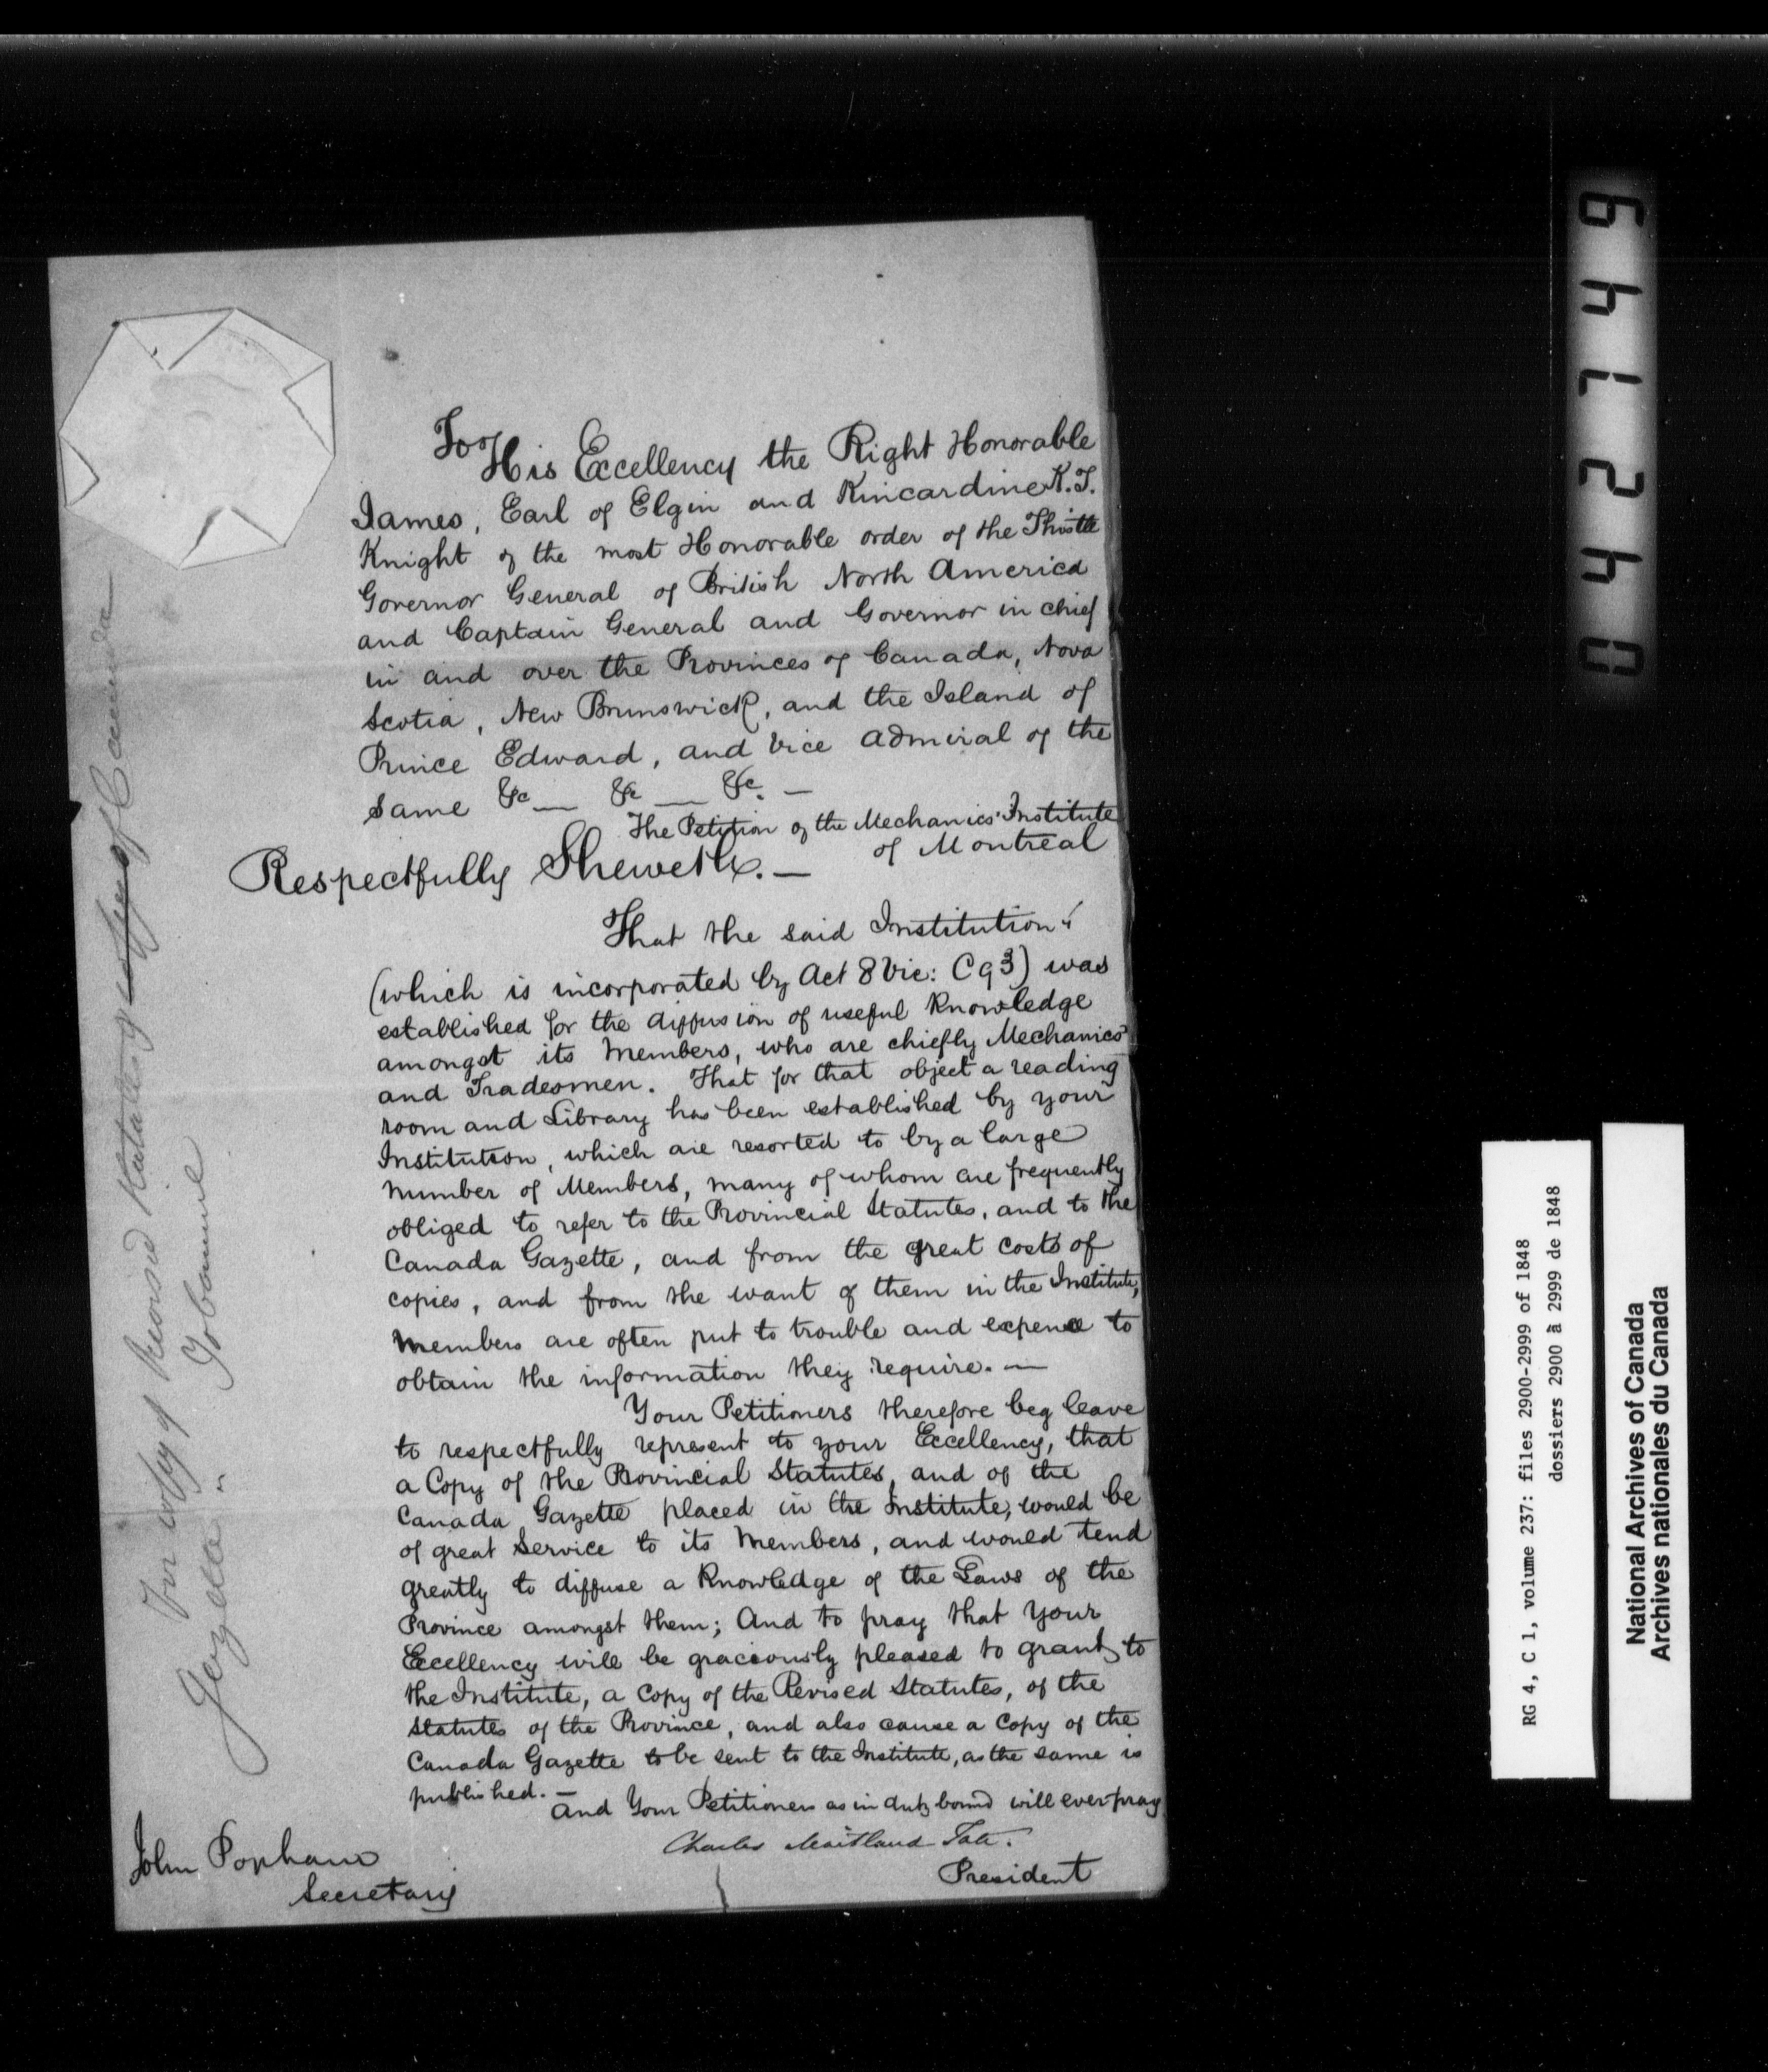 To His Excellency the Right Honorable
James, Earl of Elgin and Kincardine K.T.
Knight of the most Honorable order of the Thistle
Governor General of British North America
and Captain General and Governor in chief
in and over the Provinces of Canada, Nova
Scotia, New Brunswick, and the Island of
Prince Edward, and Vice Admiral of the
same &c — &c — &c. —
The Petition of the Mechanics' Institute
of Montreal
Respectfully Sheweth. —
That the said Institution
(which is incorporated by Act 8 Vic: C 93) was
established for the diffusion of useful Knowledge
amongst its Members, who are chiefly Mechanics
and Tradesmen. That for that object a reading
room and Library has been established by your
Institution, which are resorted to by a large
number of Members, many of whom are frequently
obliged to refer to the Provincial Statutes, and to the
Canada Gazette, and from the great costs of
copies, and from the want of them in the Institute,
Members are often put to trouble and expence to
obtain the information they require. —
Your Petitioners therefore beg leave
to respectfully represent to your Excellency, that
a Copy of the Provincial Statutes, and of the
Canada Gazette placed in the Institute, would be
of great Service to its Members, and would tend
greatly to diffuse a Knowledge of the Laws of the
Province amongst them; And to pray that Your
Excellency will be graciously pleased to grant to
the Institute, a Copy of the Revised Statutes, of the
Statutes of the Province, and also cause a Copy of the
Canada Gazette to be sent to the Institute, as the same is
published. —
And Your Petitioners as in duty bound will ever pray
Charles Maitland Tate.
President
John Popham
Secretary
of Revised
of Canada
064 2 1 4 9
RG 4, C 1, volume 237: files 2900-2999 of 1848
dossiers 2900 à 2999 de 1848
National Archives of Canada
Archives nationales du Canada